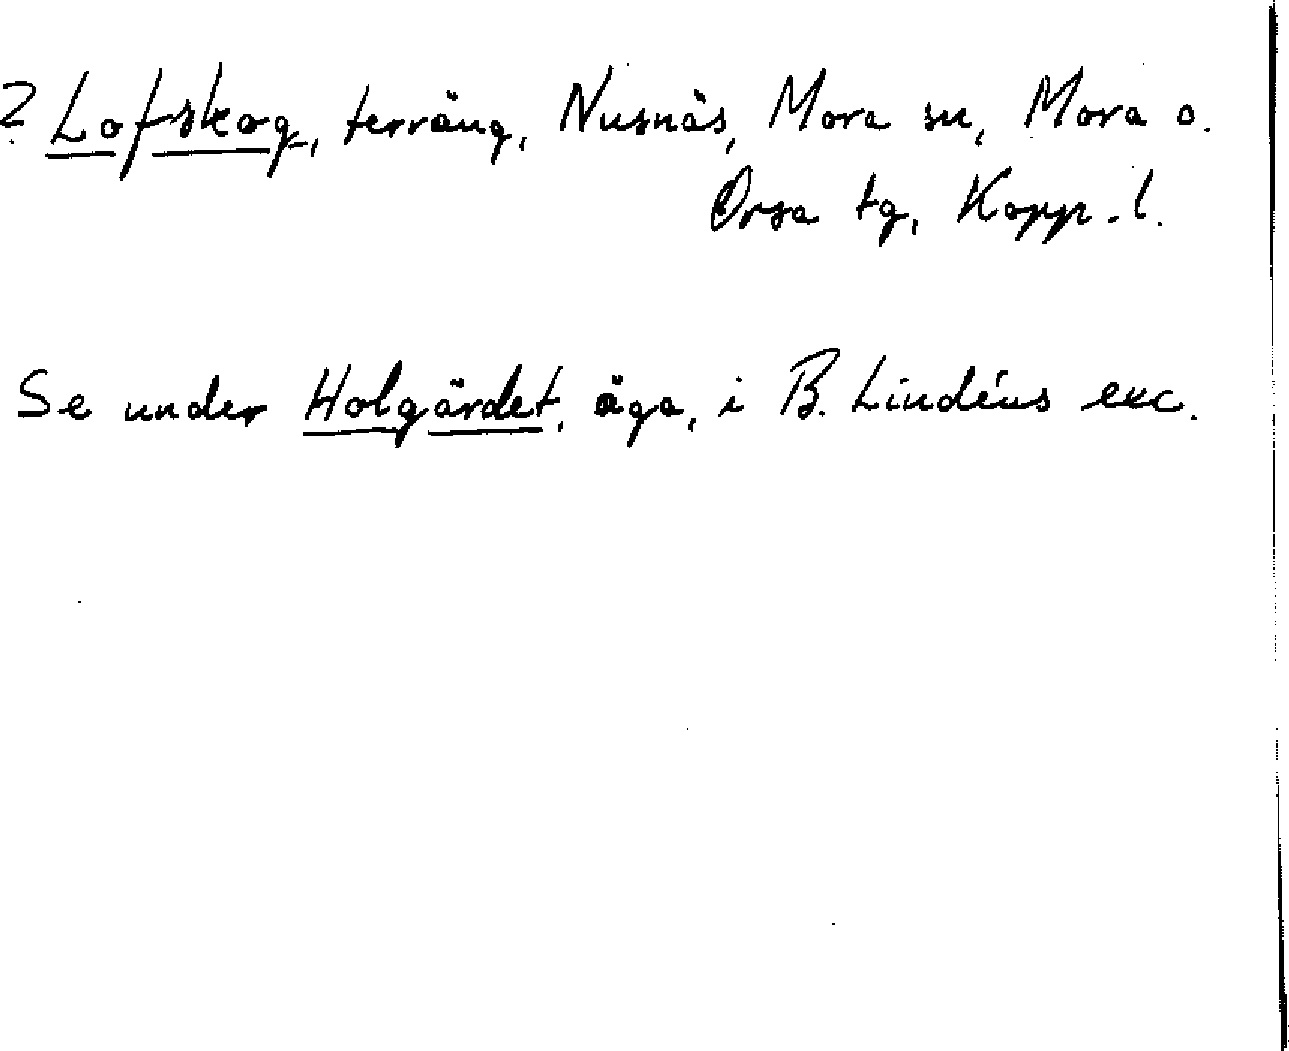 ? Lofskog, terräng, Nusnäs, Mora sn, Mora o.
Orsa tg, Kopp. l.
Se under Holgärdet, äga, i B. Lindéns exc.